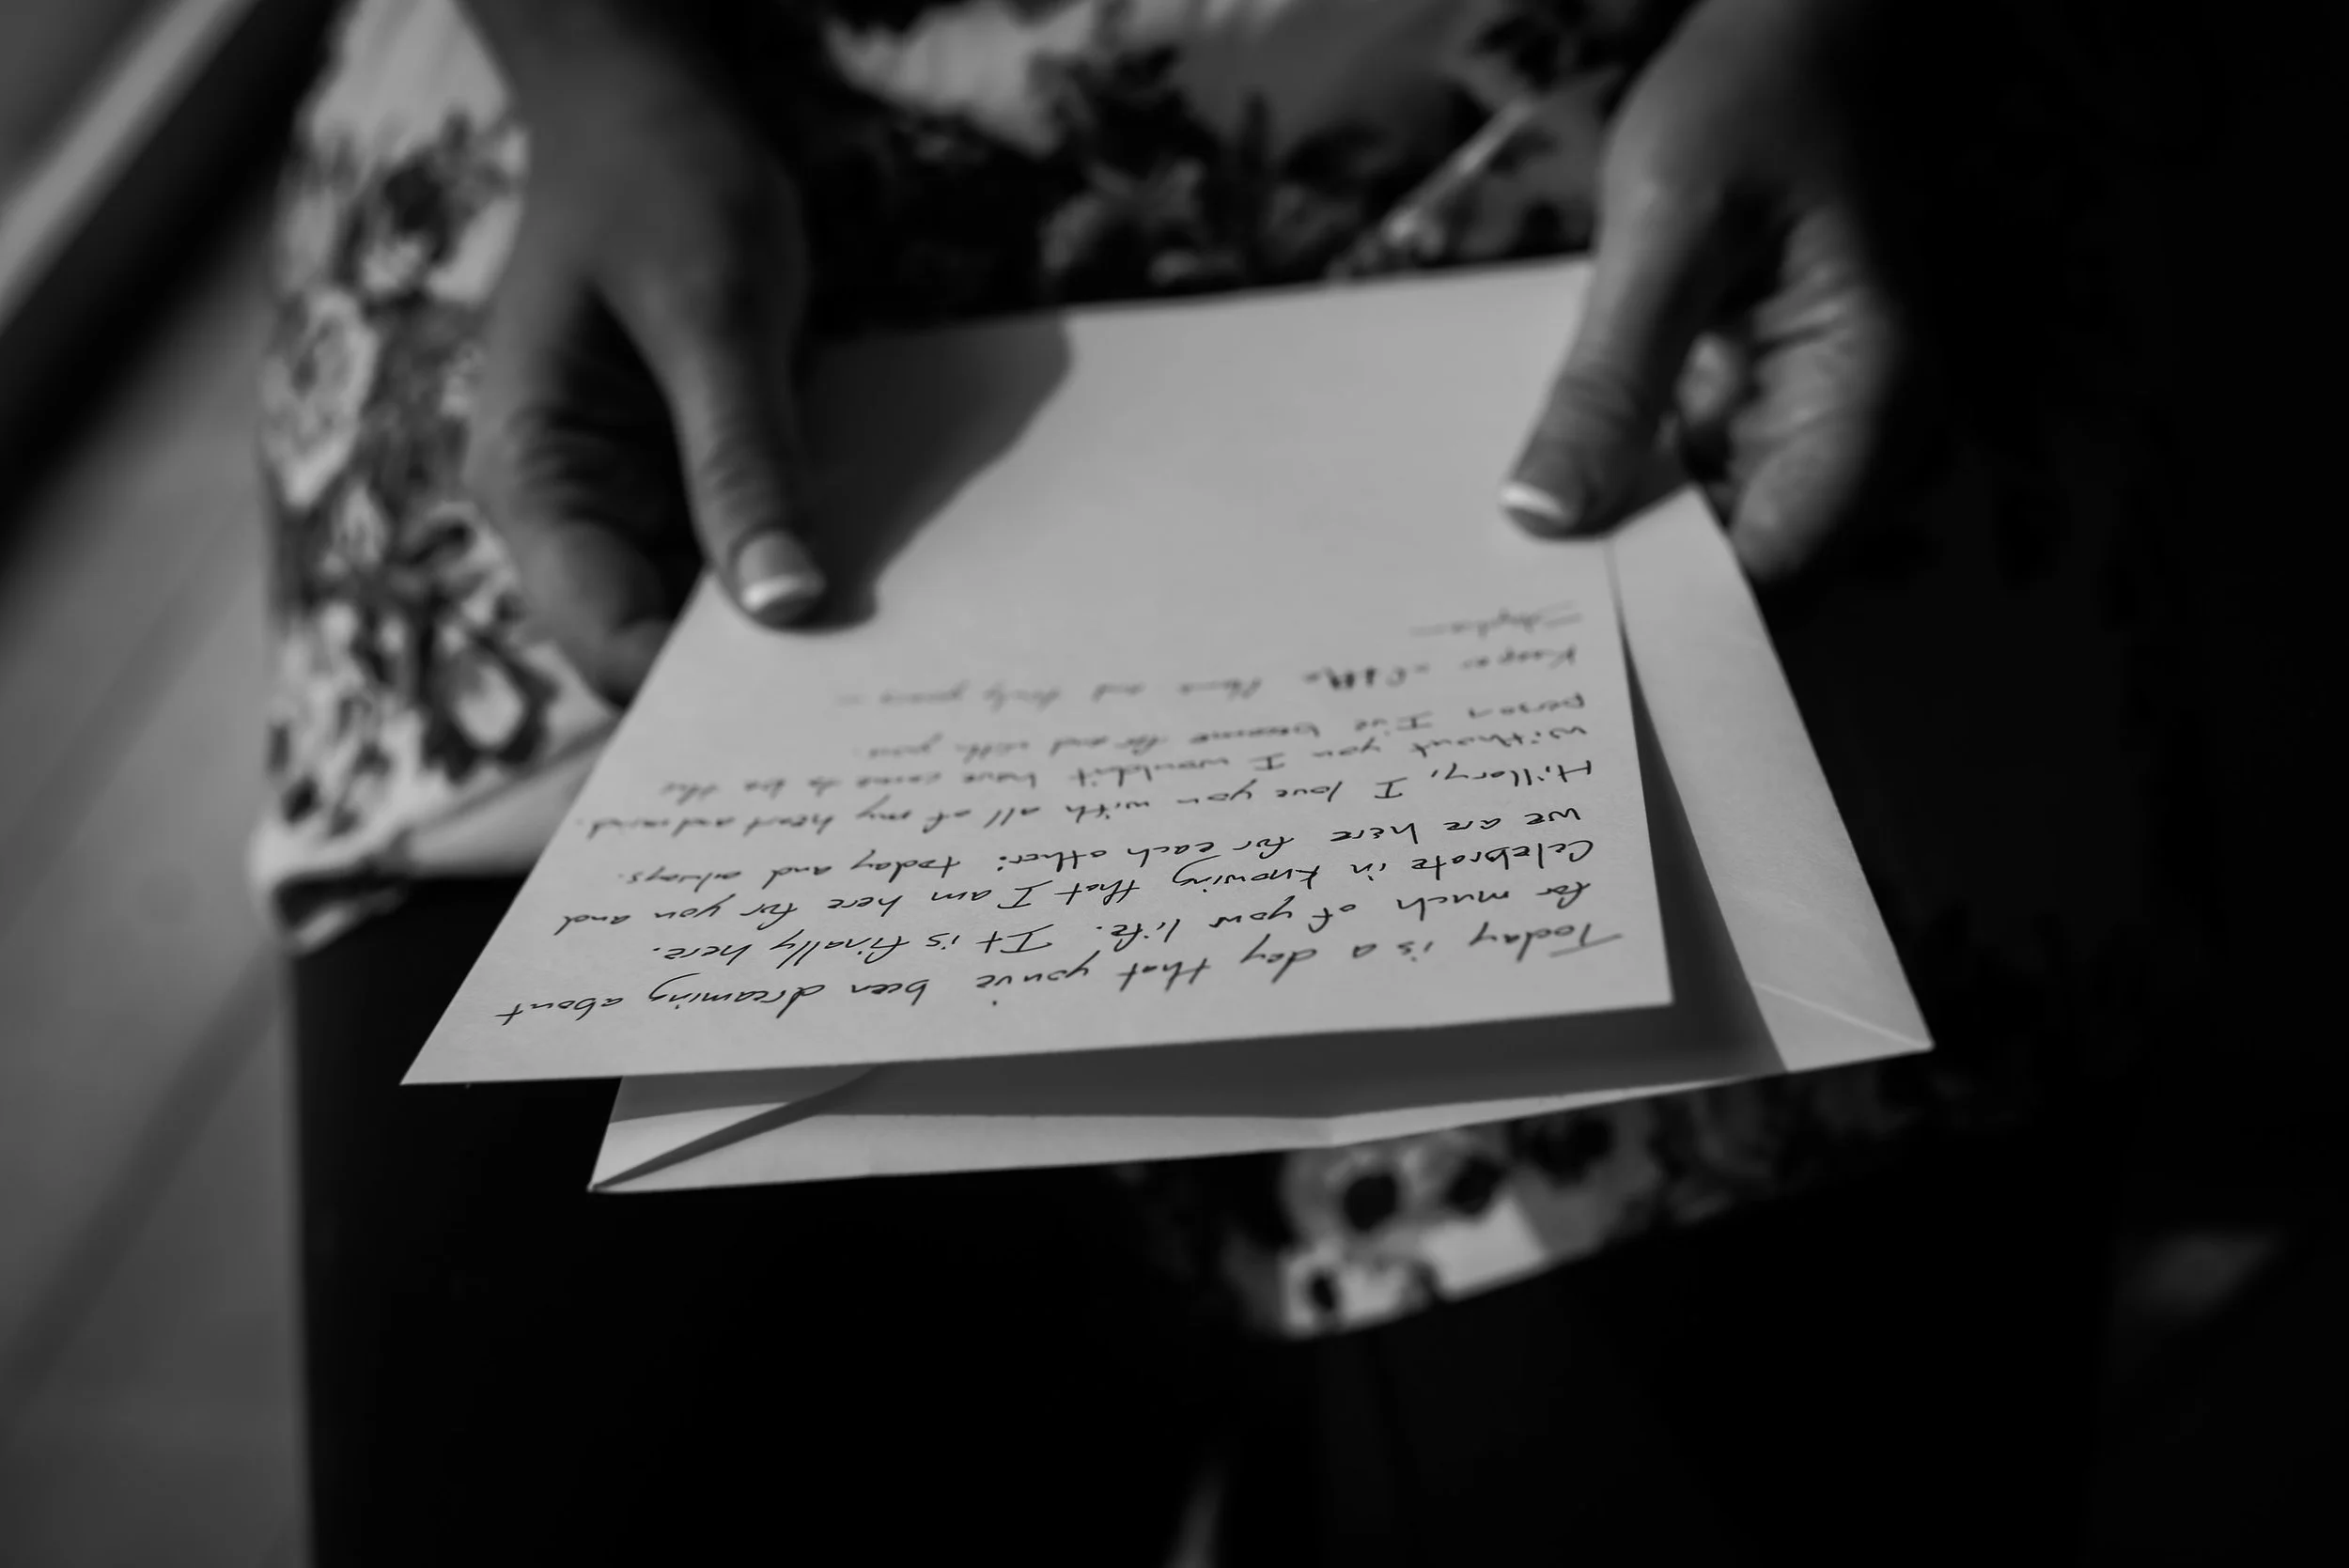 Today is a day that you've been dreaming about
for much of your life. It is finally here.
Celebrate in knowing that I am here for you and
we are here for each other: today and always.
Hillary, I love you with all of my heart and mind.
without you I wouldn't have come to be the
person I've become for and with you.
and truly yours